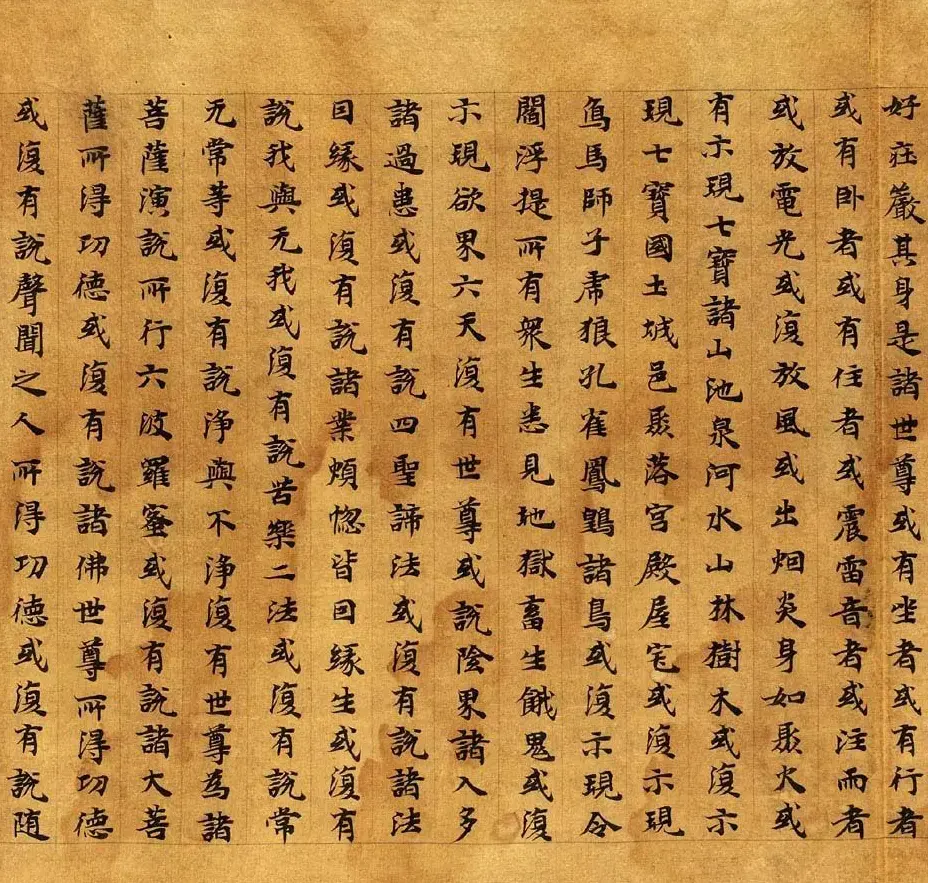 好莊嚴其身是諸世尊或有坐者或有行者
或有卧者或有住者或震雷音者或注雨者
或放電光或復放風或出烟炎身如聚火或
有示現七寶諸山池泉河水山林樹木或復示
現七寶國土城邑聚落宮殿屋宅或復示現
鳥馬師子虎狼孔雀鳳鶥諸鳥或復示現令
閻浮提所有衆生悉見地獄畜生餓鬼或復
示現欲界六天復有世尊或說陰界諸入多
諸過患或復有說四聖諦法或復有說諸法
因緣或復有說諸業煩惱皆因緣生或復有
說我與无我或復有說苦樂二法或復有說常
无常等或復有說淨與不淨復有世尊為諸
菩薩演說所行六波羅蜜或復有說諸大菩
薩所得功德或復有說諸佛世尊所得功德
或復有說聲聞之人所得功德或復有說随